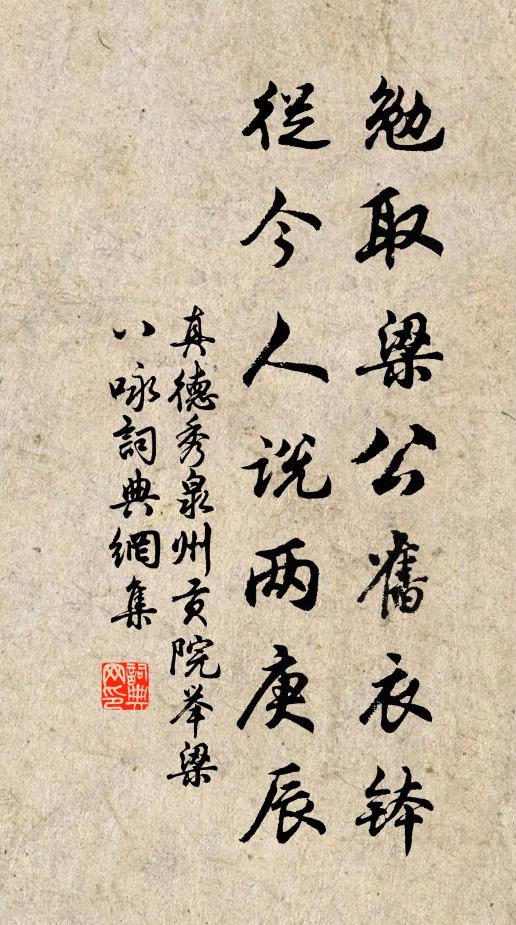 勉取梁公舊衣钵
從今人说两庚辰
真德秀泉州贡院举梁
八咏詞典網集
詞典
网印